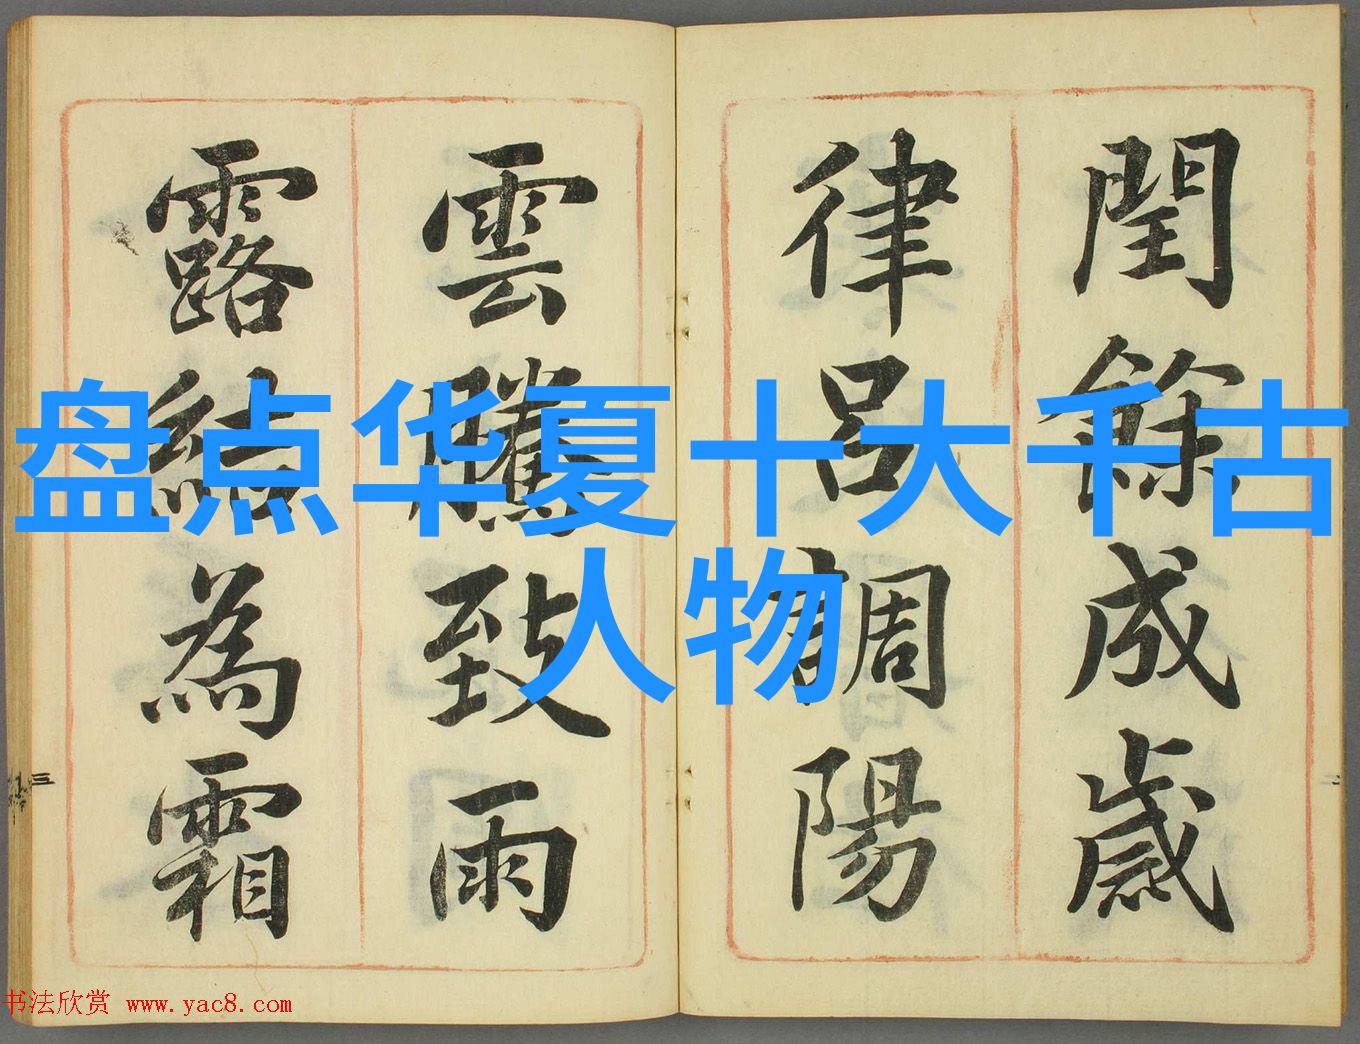 閏餘成歲
律呂調陽
雲騰致雨
露結為霜
盘点华夏十大千古
人物
三
二
书法欣赏 www.yac8.com